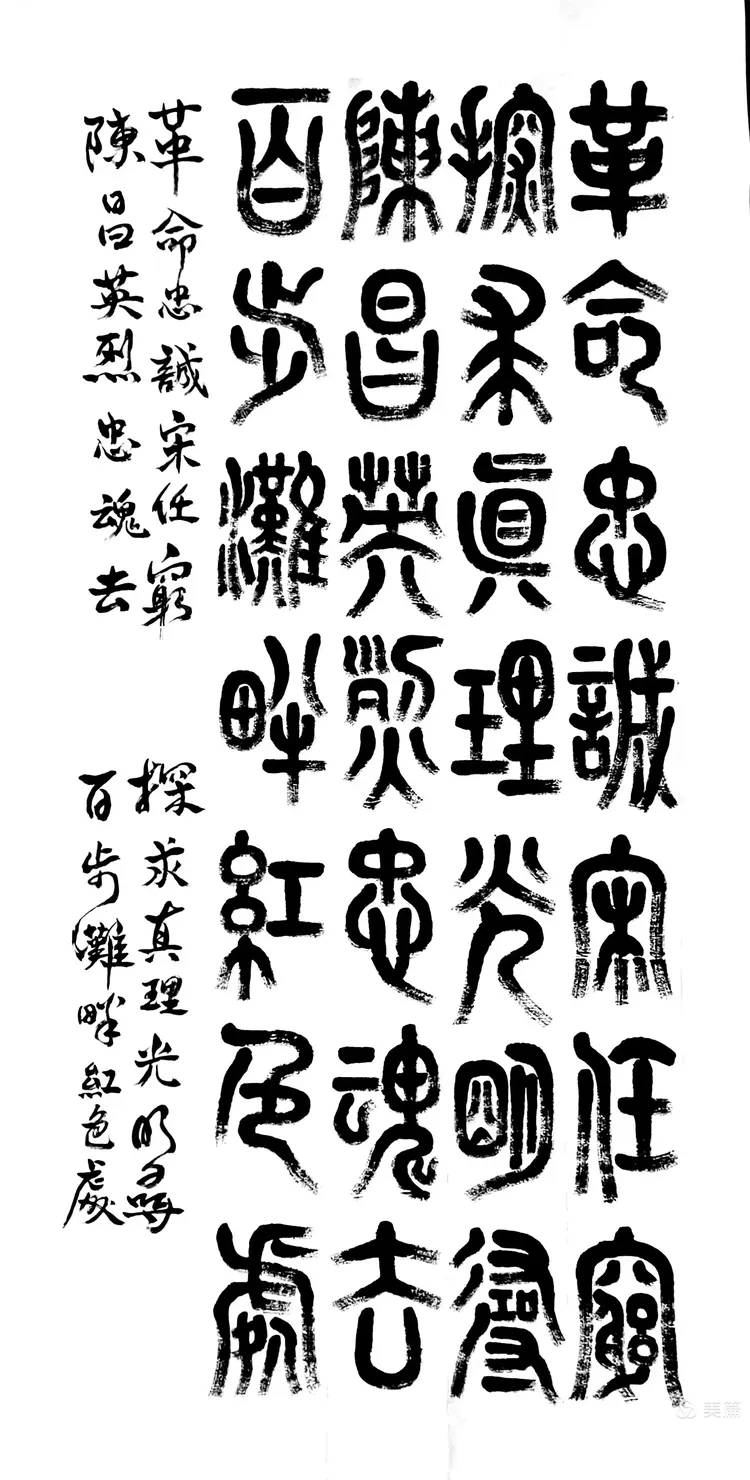 革命忠誠宋任窮
探求真理光明尋
陳昌英烈忠魂去
百步灘畔紅色處
革命忠誠宋任窮 探求真理光明尋
陳昌英烈忠魂去 百步灘畔紅色處
美篇